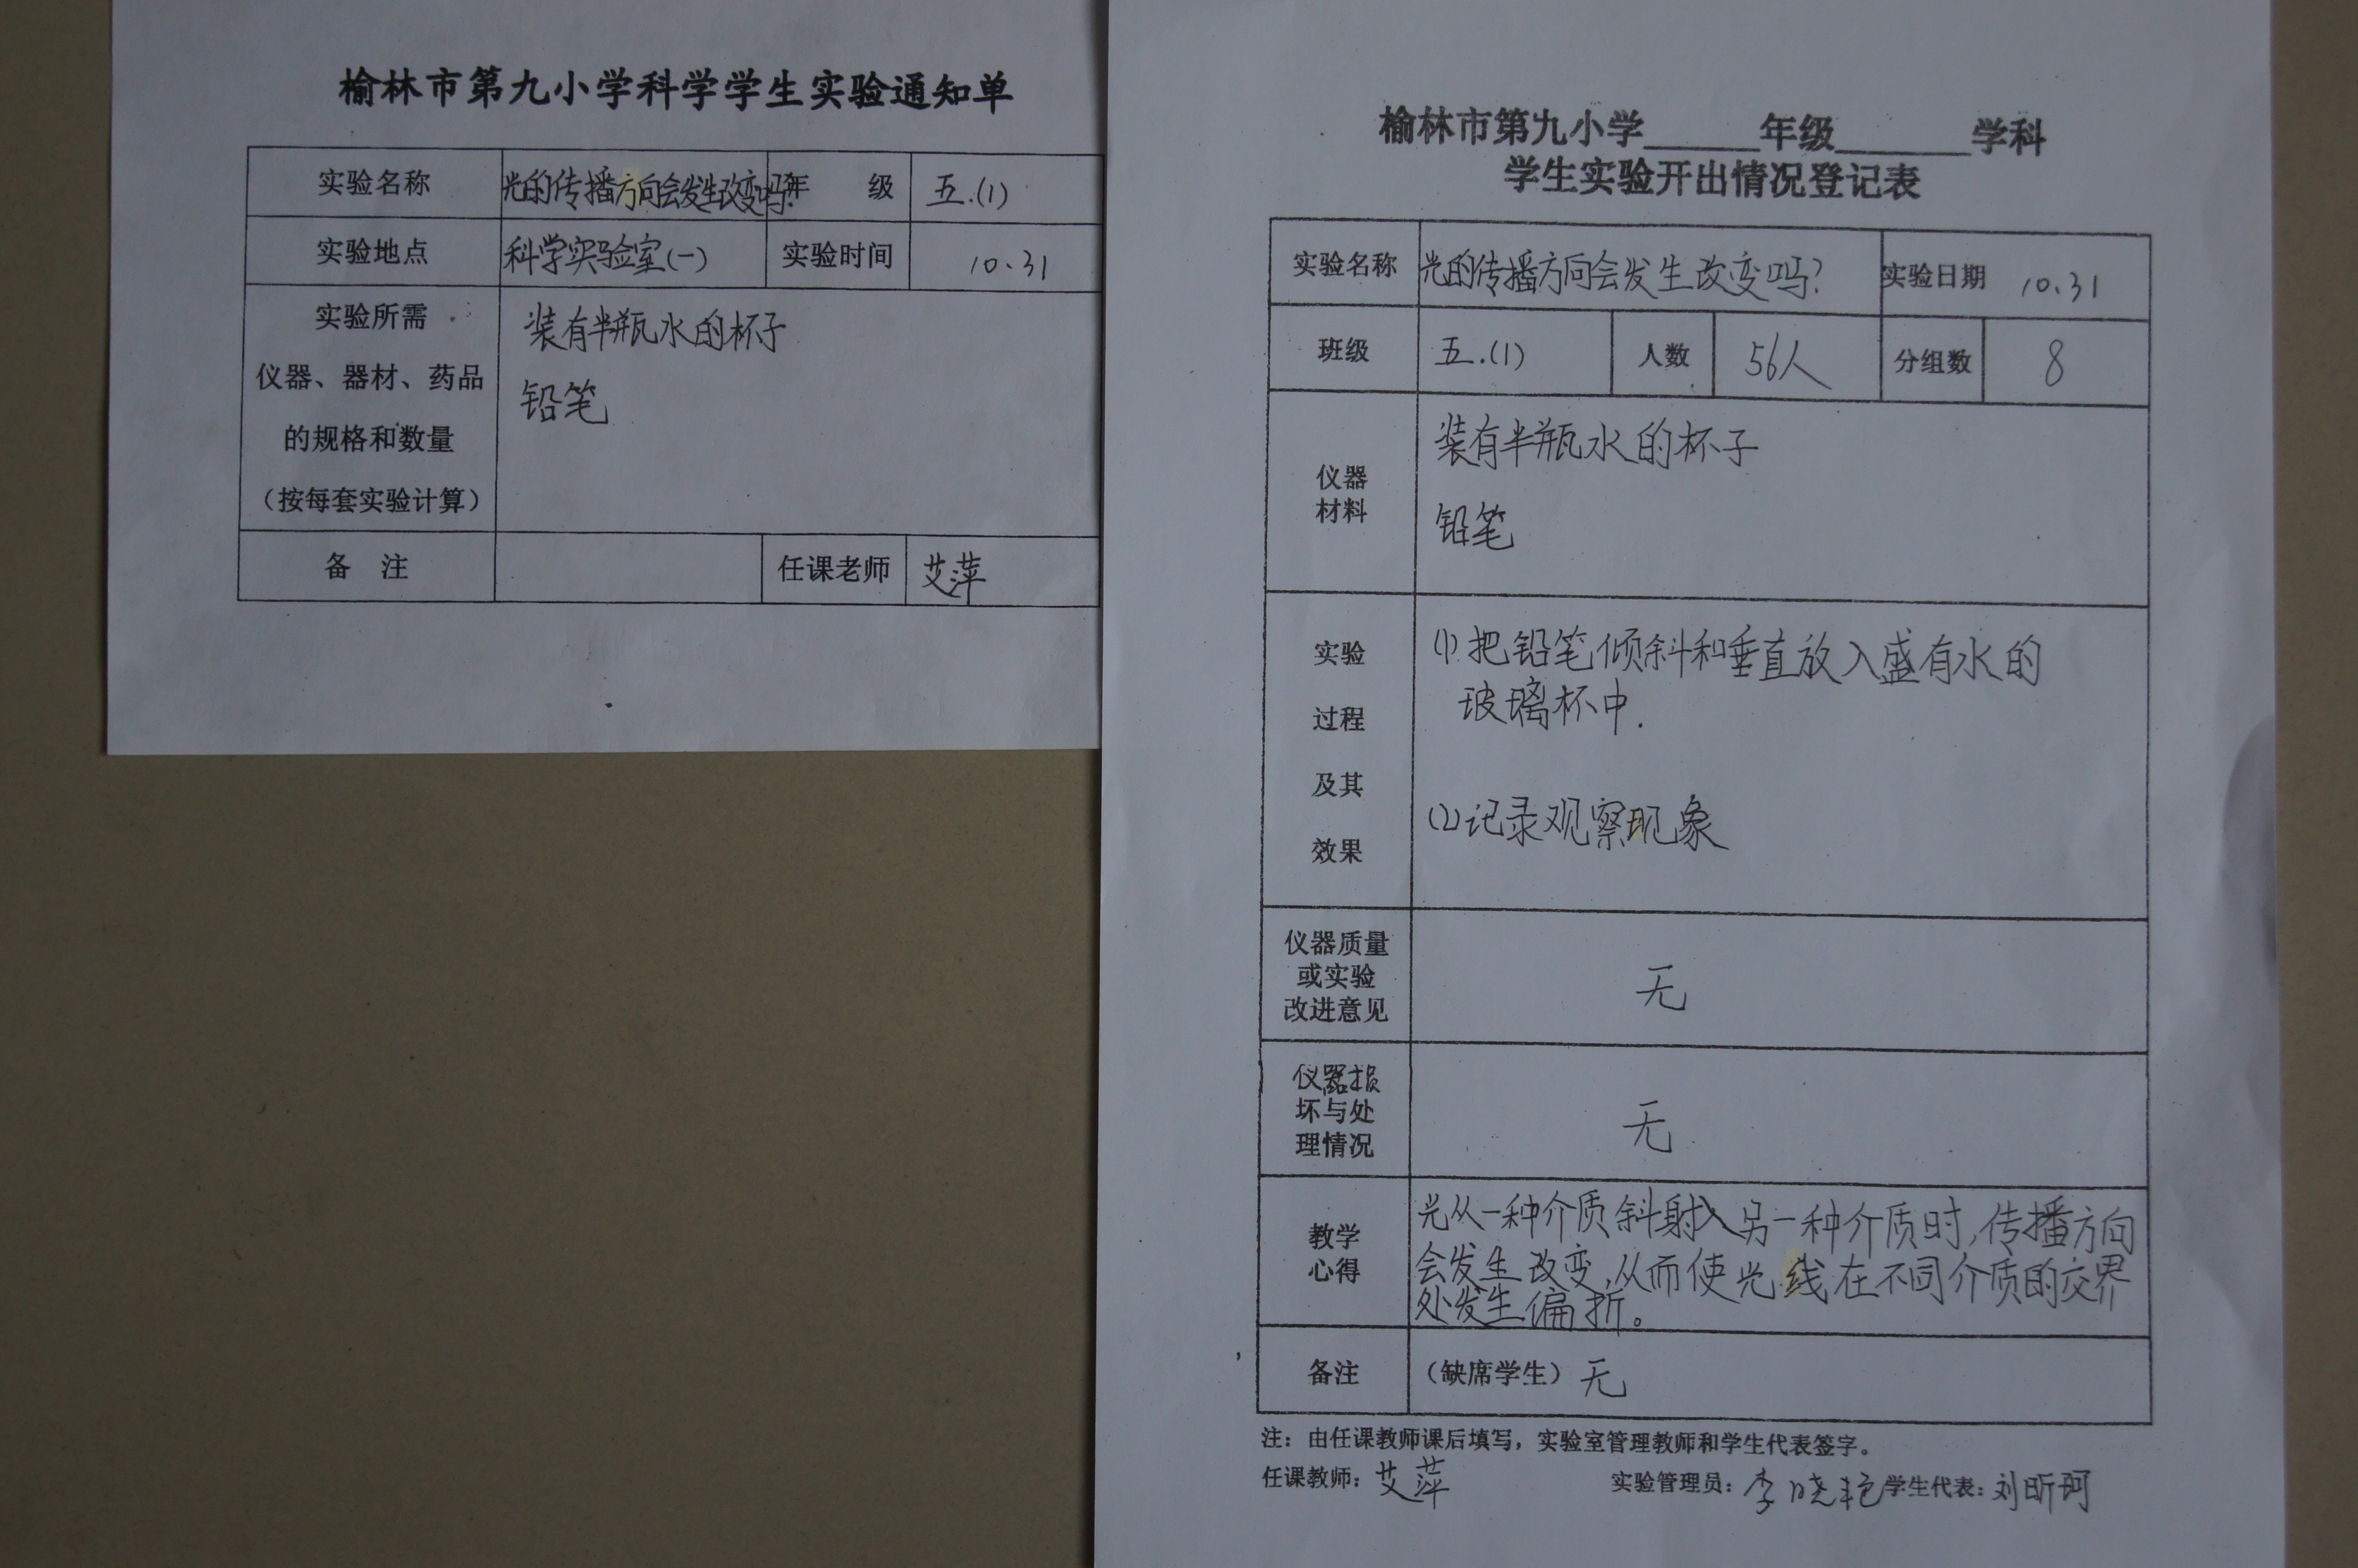 榆林市第九小学科学学生实验通知单
实验名称 光的传播方向会发生改变吗? 年 级 五.(1)
实验地点 科学实验室(一) 实验时间 10.31
实验所需
仪器、器材、药品
的规格和数量
（按每套实验计算）
装有半瓶水的杯子
铅笔
备 注 任课老师 艾萍
榆林市第九小学______年级_______学科
学生实验开出情况登记表
实验名称 光的传播方向会发生改变吗? 实验日期 10.31
班级 五.(1) 人数 56人 分组数 8
仪器
材料
装有半瓶水的杯子
铅笔
实验
过程
及其
效果
(1).把铅笔倾斜和垂直放入盛有水的
玻璃杯中.
(2)记录观察现象
仪器质量
或实验
改进意见
无
仪器损
坏与处
理情况
无
教学
心得
光从一种介质斜射入另一种介质时,传播方向
会发生改变,从而使光线在不同介质的交界
处发生偏折。
备注 （缺席学生）无
注：由任课教师课后填写，实验室管理教师和学生代表签字。
任课教师：艾萍 实验管理员：李晓艳 学生代表：刘昕珂